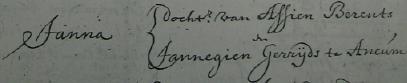 Janna
dochtr. van Assien Berents
en
Jannegien Gerrijds te Aneúm